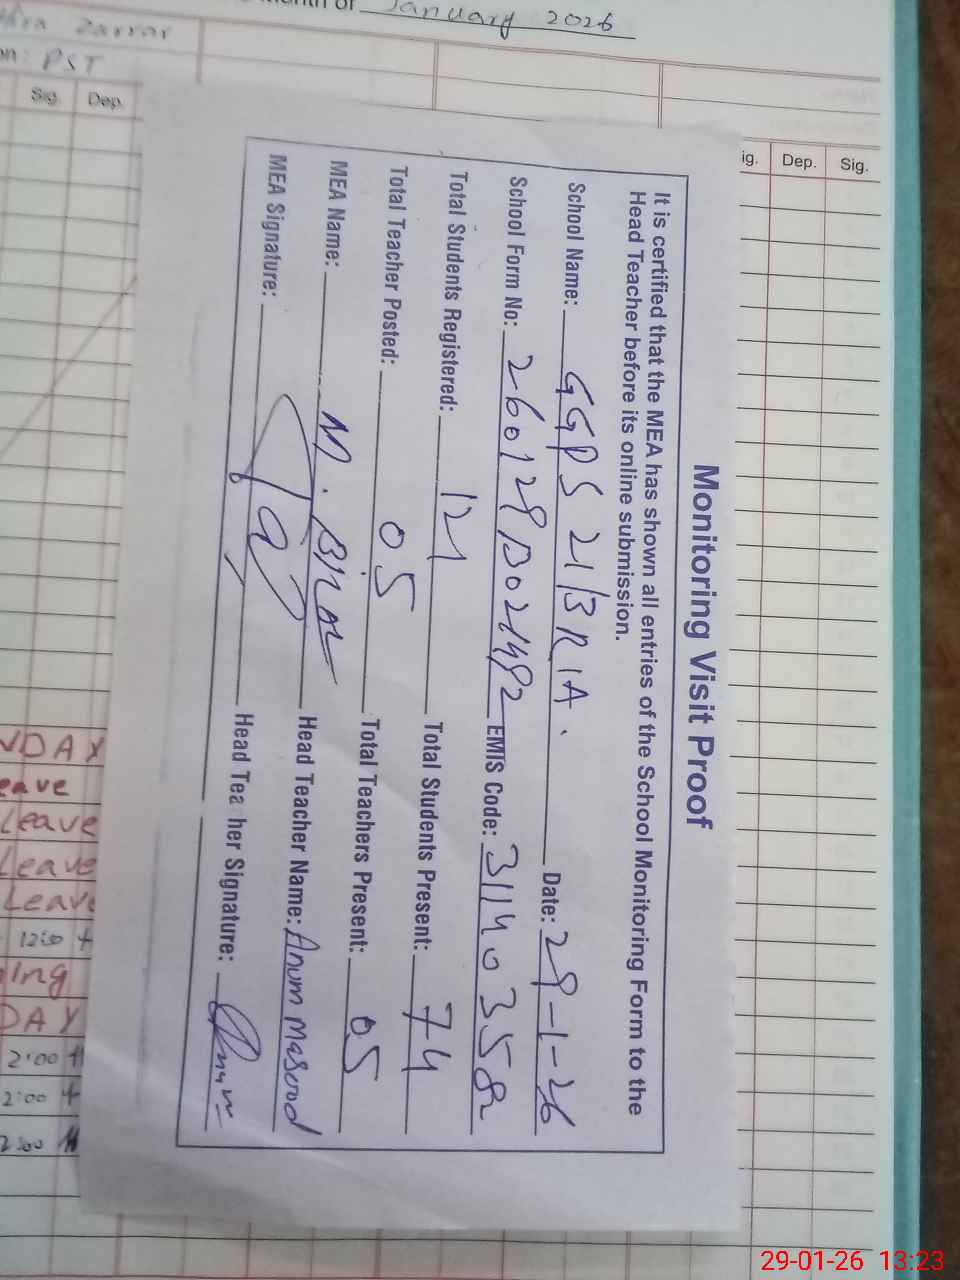 Month of January 2026
Zarrar
on: PST
Sig. Dep.
ig. Dep. Sig.
Monitoring Visit Proof
It is certified that the MEA has shown all entries of the School Monitoring Form to the
Head Teacher before its online submission.
School Name: GGPS 21/3R1A. Date: 29-1-26
School Form No: EMIS Code: 31140358
Total Students Registered: 121 Total Students Present: 74
Total Teacher Posted: 05 Total Teachers Present: 05
MEA Name: M. Head Teacher Name: Anum Masood
MEA Signature: Head Tea her Signature:
NDAY
eave
Leave
Leave
Leave
12:00
ing
DAY
2:00
2:00
2:00
29-01-26 13:23